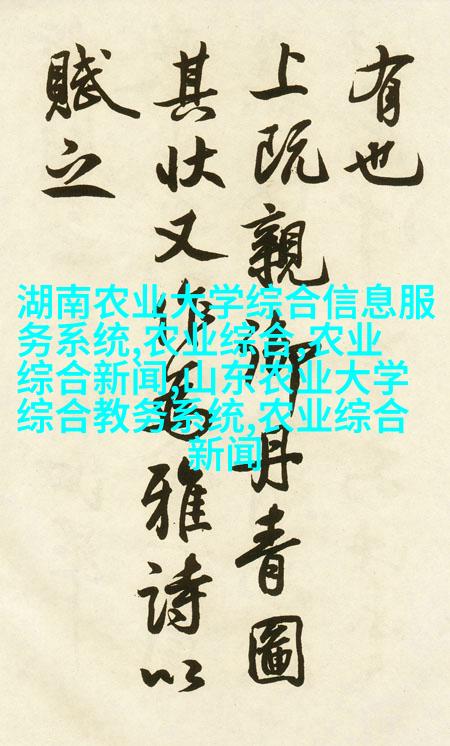 有也
上既親御丹青圖
其状又作為雅詩以
賦之
湖南农业大学综合信息服
务系统,农业综合,农业
综合新闻,山东农业大学
综合教务系统,农业综合
新闻